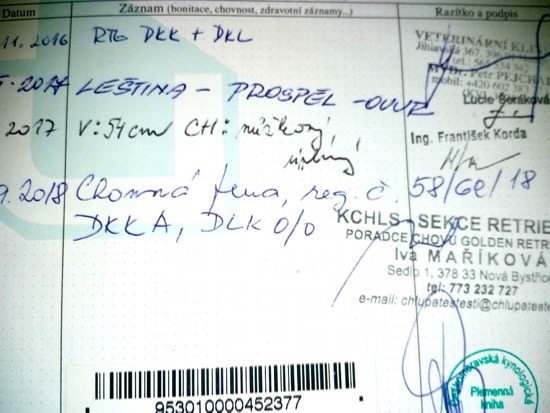 Datum Záznam (bonitace, chovnost, zdravotní záznamy...) Razítko a podpis
11. 2016 RTG DKK + DKL
VETERINÁRNÍ KLI
Jihlavská 367,
MVDr. Petr PEJCHAL
mobil: +420 602 383
2017 LEŠTINA - PROSPĚL - OVVR
Lucie Šeráková
2017 V: 54cm CH: nůžkový,
úplný
Ing. František Korda
9. 2018 Chovná fena, reg. č. 58/Ge/18
DKK A, DLK 0/0
KCHLS - SEKCE RETRIE
PORADCE CHOVU GOLDEN RETR
Iva MAŘÍKOVÁ
Sedlo 1, 378 33 Nová Bystřic
tel: 773 232 727
e-mail: chlupatestesti@chlupateste
953010000452377
kynologická
Plemenná
kniha